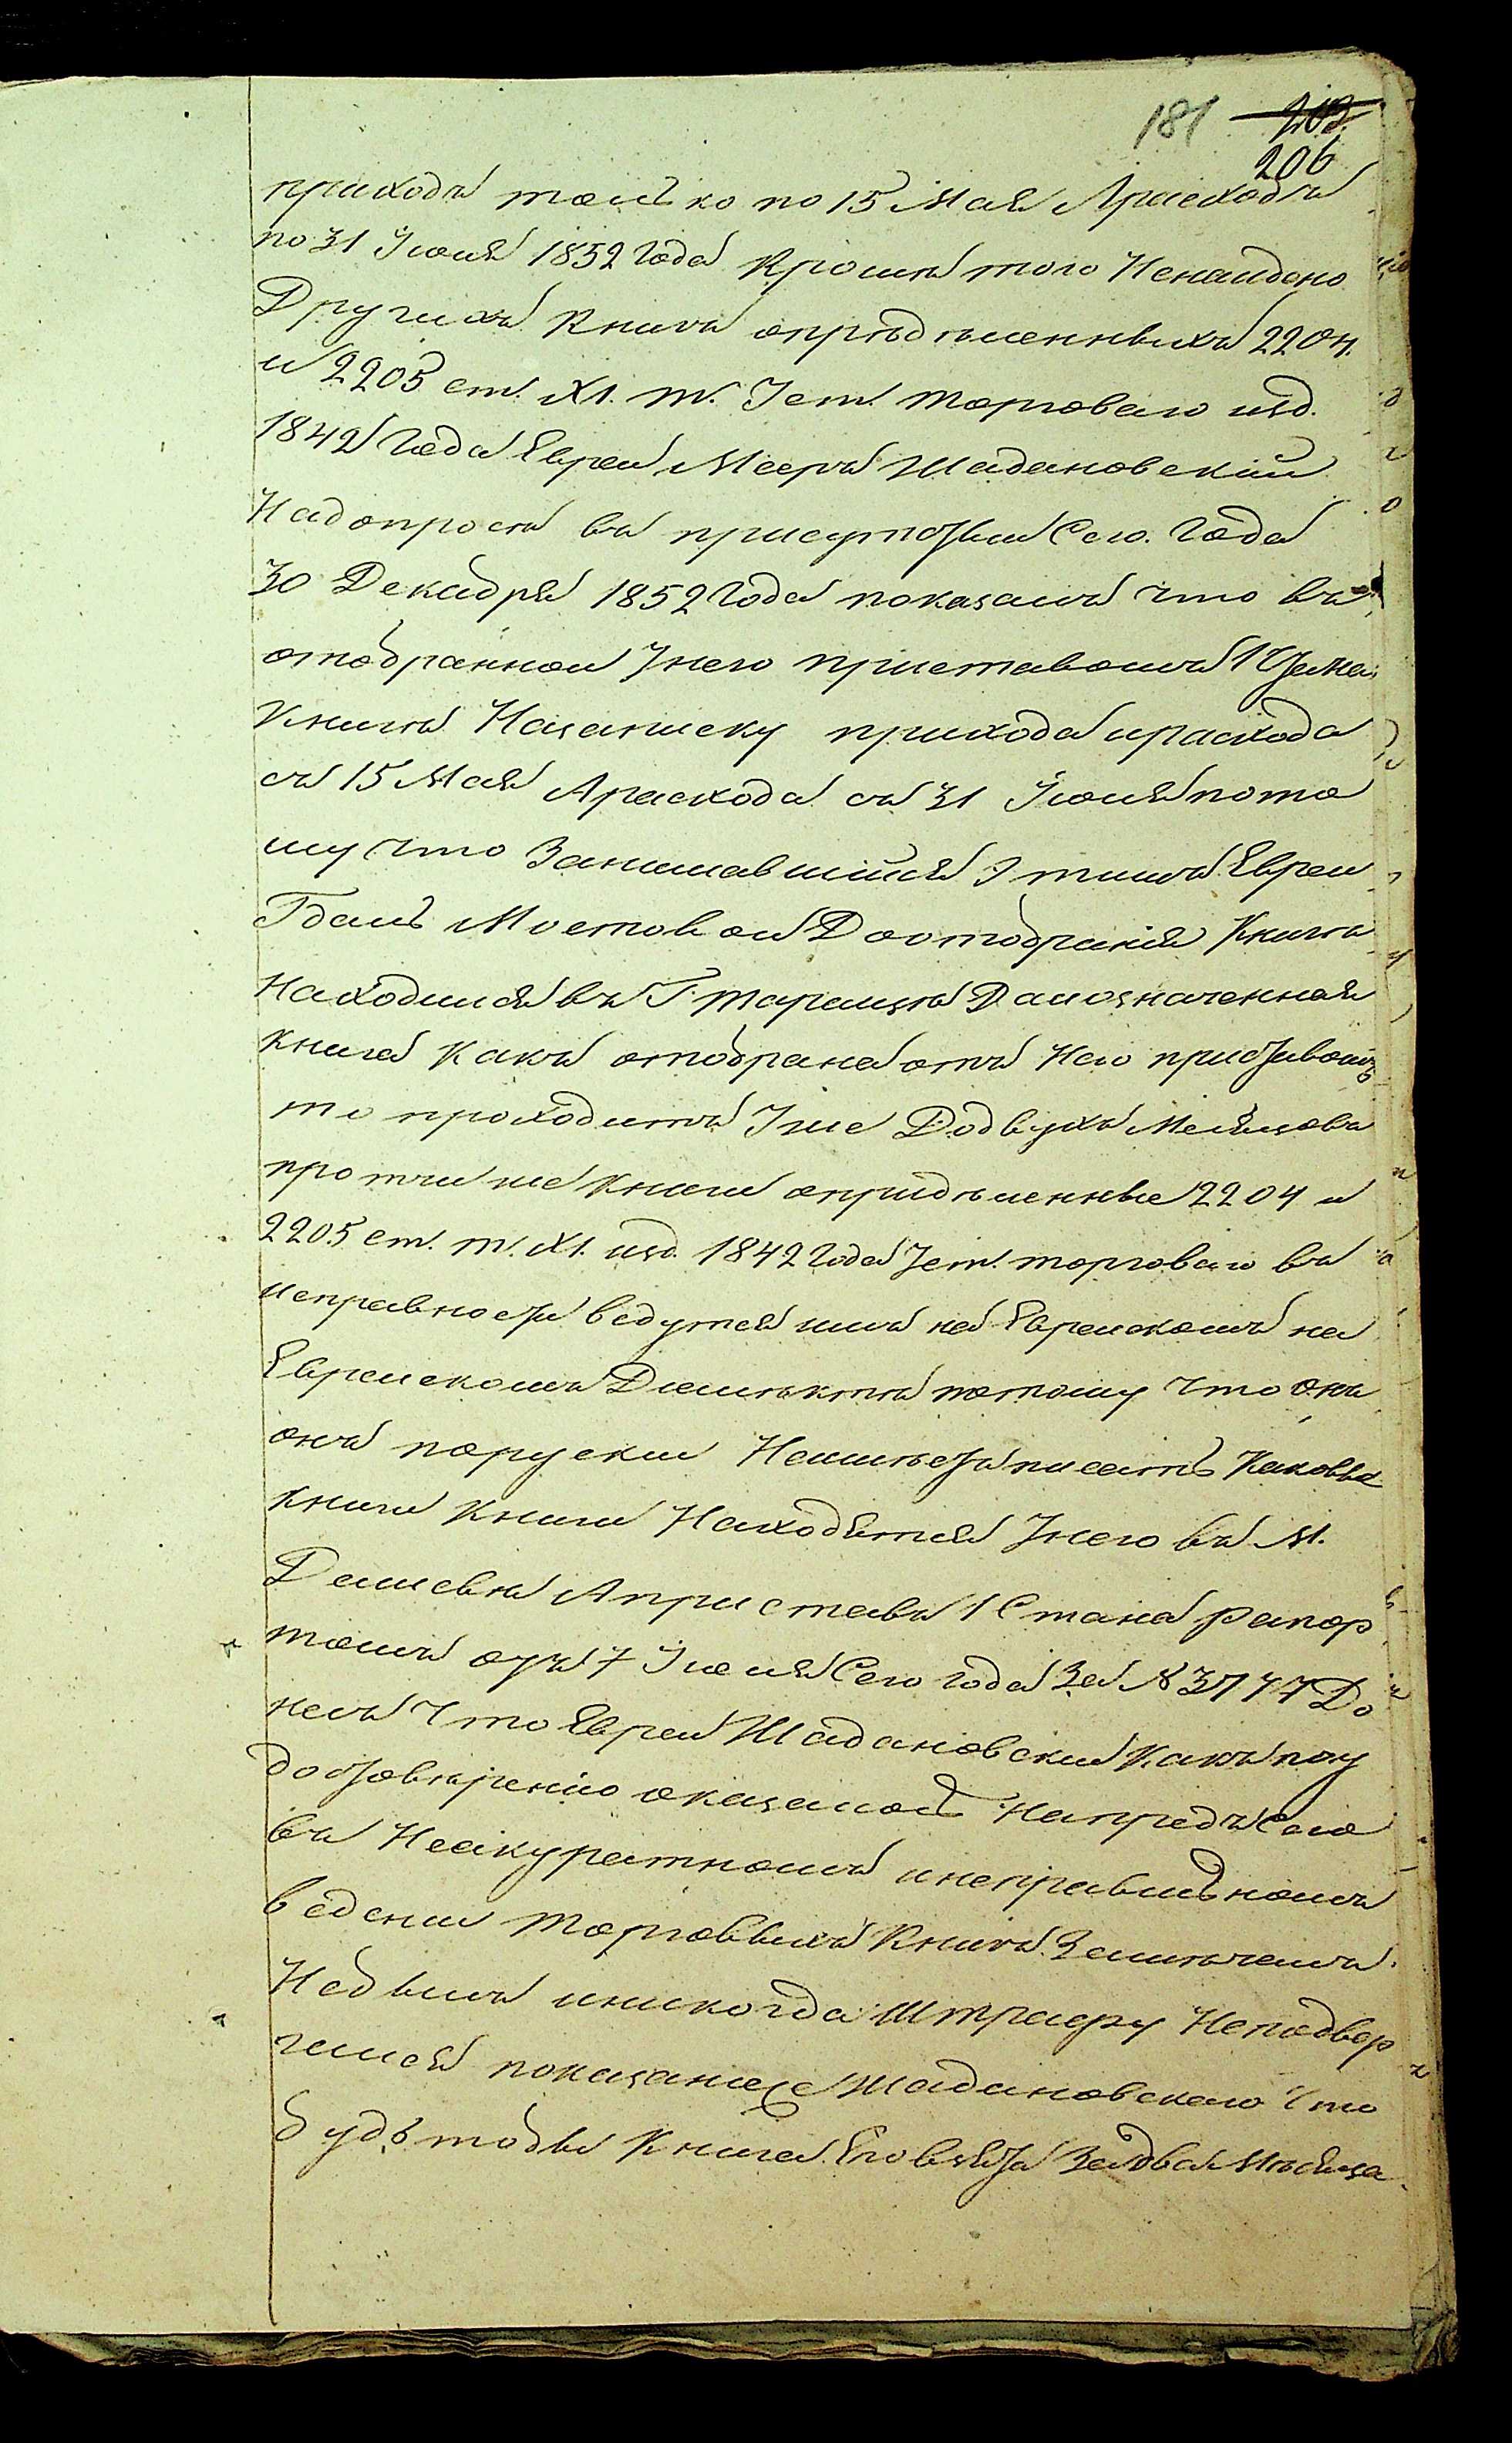 181 203.
206
приходъ только по 15 Мая Арасходъ
по 31 Іюля 1852 года Кромѣ того Ненайдено
Другихъ Книгъ опредѣленныхъ 2204.
и 2205 ст. XI. т. Уст. торговаго изд.
1842 года Еврей Мееръ Шадановскій
Надопросѣ въ присутствіи Сего. Года
30 Декабря 1852 года показалъ что въ
отобранной Унего приставомъ 1 Стана
Книгѣ Назаписку прихода ирасхода
съ 15 Мая Арасхода съ 31 Іюля пото
му что Занимавшійся Этимъ Еврей
Мостовой Доотобранія Книги
Находился въ Г. Таращѣ Даиозначенная
книга какъ отобрана отъ Него приставомъ
то проходитъ Уже Додвухъ Месяцовъ
протчие же Книги опридѣленные 2204 и
2205 ст. т. XI. изд. 1842 года Уст. торговаго въ
исправности ведутся имъ на Еврейскомъ на
Еврейскомъ Диалѣктѣ потому что онъ
онъ поруски Неимѣетъ писать Каковые
книги Книги Находятся Унего въ М.
Дашевѣ Априставъ 1 Стана рапор
томъ отъ 7 Іюля Сего года За № 3777 До
несъ Что Еврей Шадановский Какъ поу
достовѣренію оказалось Напредъ Сего
въ Неакуратномъ инеправильномъ
ведении Торговыхъ Книгъ Замѣчемъ.
Небылъ иникогда Штрафу Неподвер
гался показание Шадановскаго Что
будьтобы Книга Еговзята Задва Мѣсяца